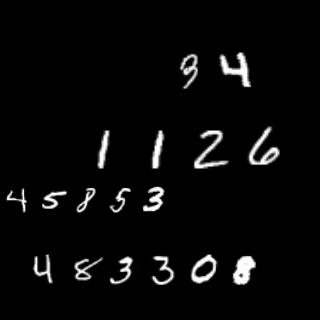 34
1126
45853
483308